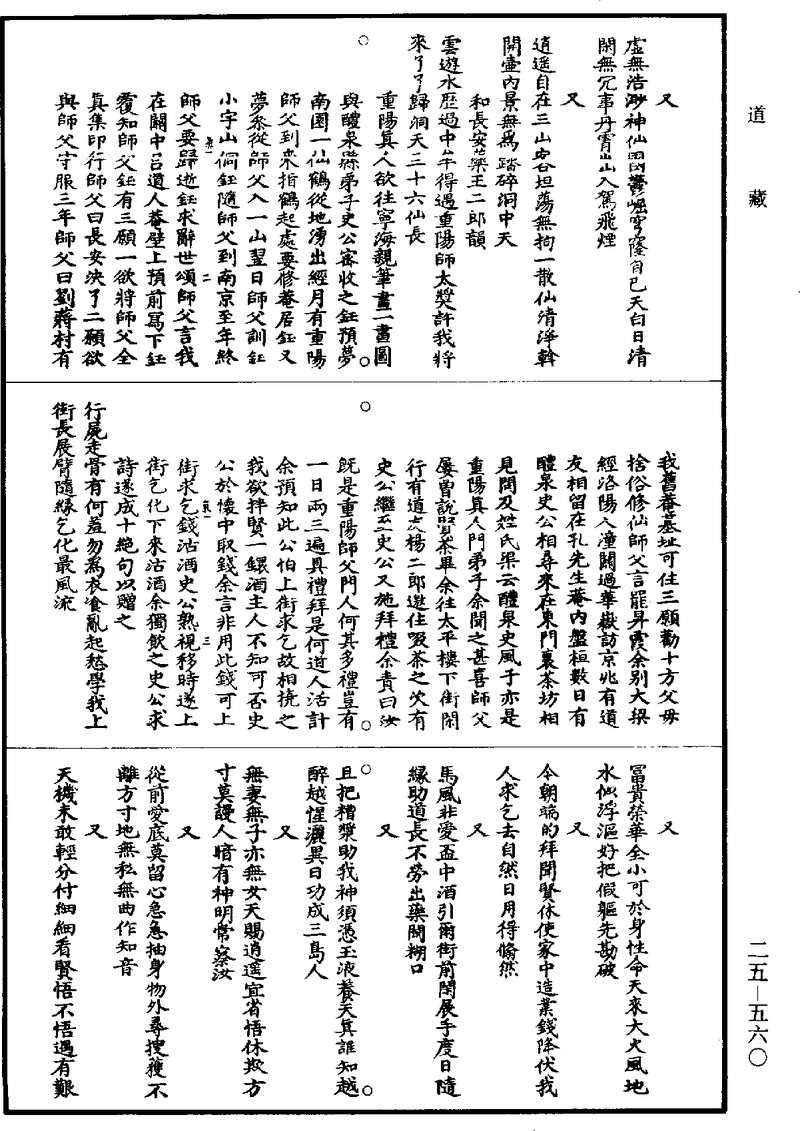 道藏
又
虛無浩渺神仙國鬱崛穹窿自已天白日清
閑無冗事丹霄出入駕飛煙
又
逍遥自在三山客坦蕩無拘一散仙清淨斡
開壷内景無爲踏碎洞中天
和長安藥王二郎韻
雲遊水歷過中年得遇重陽師太奬許我將
來了了歸洞天三十六仙長
重陽真人欲往寧海親筆畫一畫圖
與醴泉縣弟子史公密收之鈺預夢
南園一仙鶴從地湧出經月有重陽
師父到來指鶴起處要修菴居鈺又
夢叅從師父入一山翌日師父訓鈺
小字山侗鈺隨師父到南京至年終
師父要歸逝鈺求辭世頌師父言我
在關中吕道人菴壁上預前寫下鈺
覆知師父鈺有三願一欲將師父全
真集印行師父曰長安決了二願欲
與師父守服三年師父曰劉蔣村有
我舊菴基址可住三願勸十方父母
捨俗修仙師父言罷昇霞余别大梁
經洛陽入潼關過華嶽訪京兆有道
友相留在孔先生菴内盤桓數日有
醴泉史公相尋來在東門裏茶坊相
見問及姓氏渠云醴泉史風子亦是
重陽真人門弟子余聞之甚喜師父
屢曾說賢茶畢余往太平樓下街閑
行有道友楊二郎邀住啜茶之次有
史公繼至史公又施拜禮余責曰汝
既是重陽師父門人何其多禮豈有
一日兩三遍具禮拜是何道人活計
余預知此公怕上街求乞故相撓之
我欲拌賢一鐶酒主人不知可否史
公於懷中取錢余言非用此錢可上
街求乞錢沽酒史公熟視移時遂上
街乞化下來沽酒余獨飲之史公求
詩遂成十絶句以贈之
行屍走骨有何羞勿爲衣飡亂起愁學我上
街長展臂隨緣乞化最風流
又
冨貴榮華全小可於身性命天來大火風地
水似浮漚好把假軀先勘破
又
今朝端的拜聞賢休使家中造業錢降伏我
人求乞去自然日用得翛然
又
馬風非愛盃中酒引爾街前閑展手度日隨
緣助道長不勞出藥閑糊口
又
且把糟漿助我神須憑玉液養天真誰知越
醉越惺灑異日功成三島人
又
無妻無子亦無女天賜逍遥宜省悟休欺方
寸莫謾人暗有神明常察汝
又
從前愛底莫留心急急抽身物外尋搜獲不
離方寸地無私無曲作知音
又
天機未敢輕分付細細看賢悟不悟遇有艱
二五—五六〇